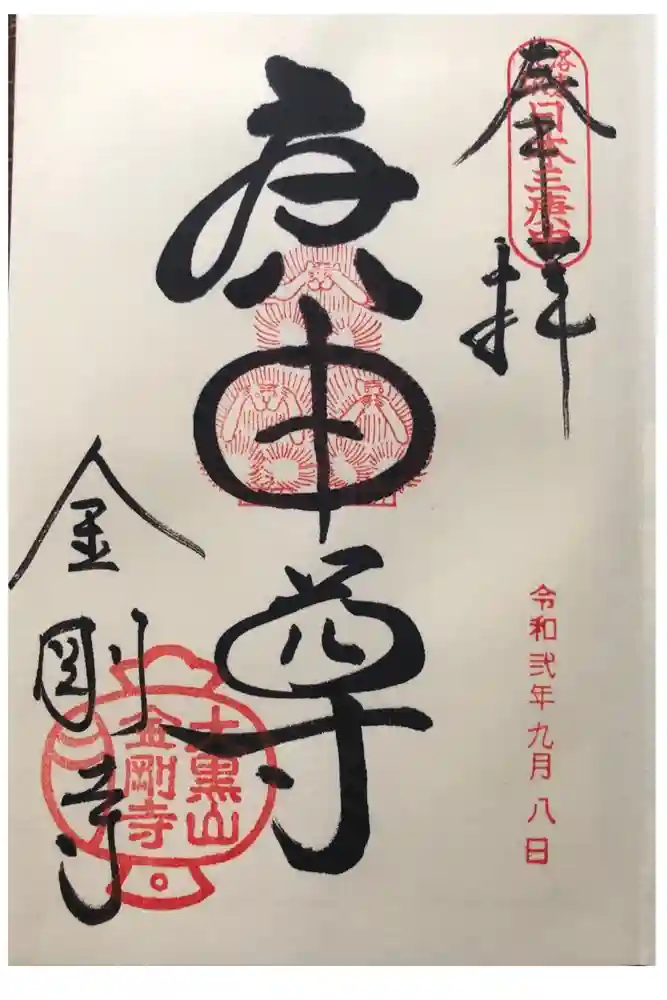 奉拝
日本三庚申
庚申尊
令和弐年九月八日
金剛寺
大黒山
金剛寺